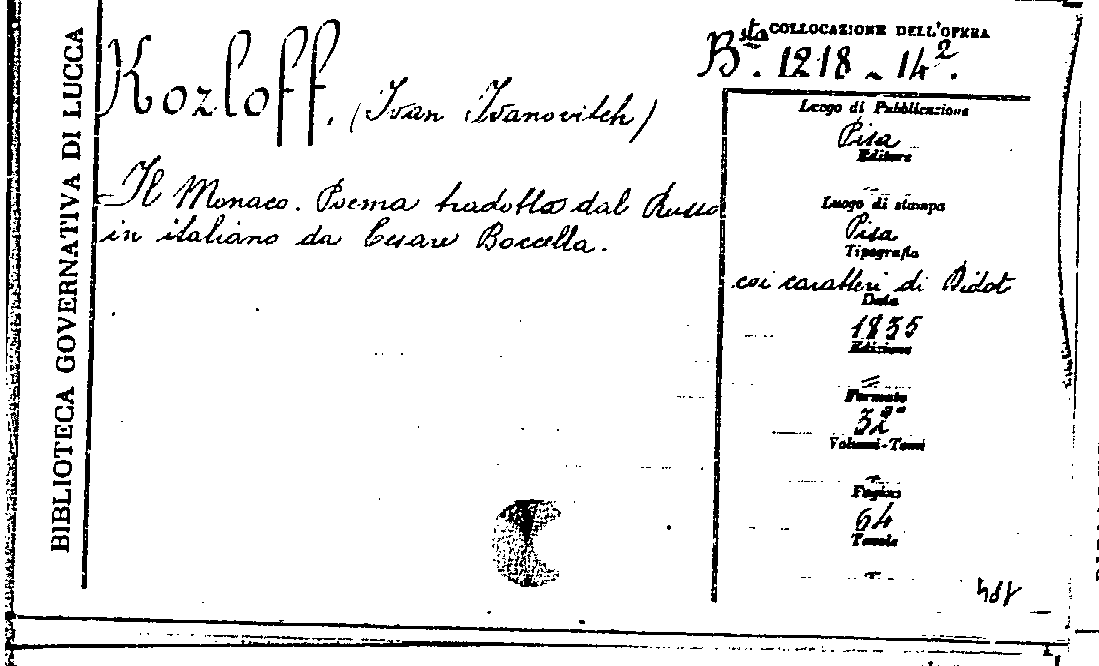 BIBLIOTECA GOVERNATIVA DI LUCCA
Kozloff. (Ivan Ivanovitch)
Il Monaco. Poema tradotto dal Russo
in italiano da Cesare Boccella.
COLLOCAZIONE DELL'OPERA
Bsta. 1218 - 14².
Luogo di Pubblicazione
Pisa
Editore
Luogo di stampa
Pisa
Tipografia
coi caratteri di Didot
Data
1835
Edizione
=
Formato
32°
Volumi-Tomi
Pagine
64
Tavole